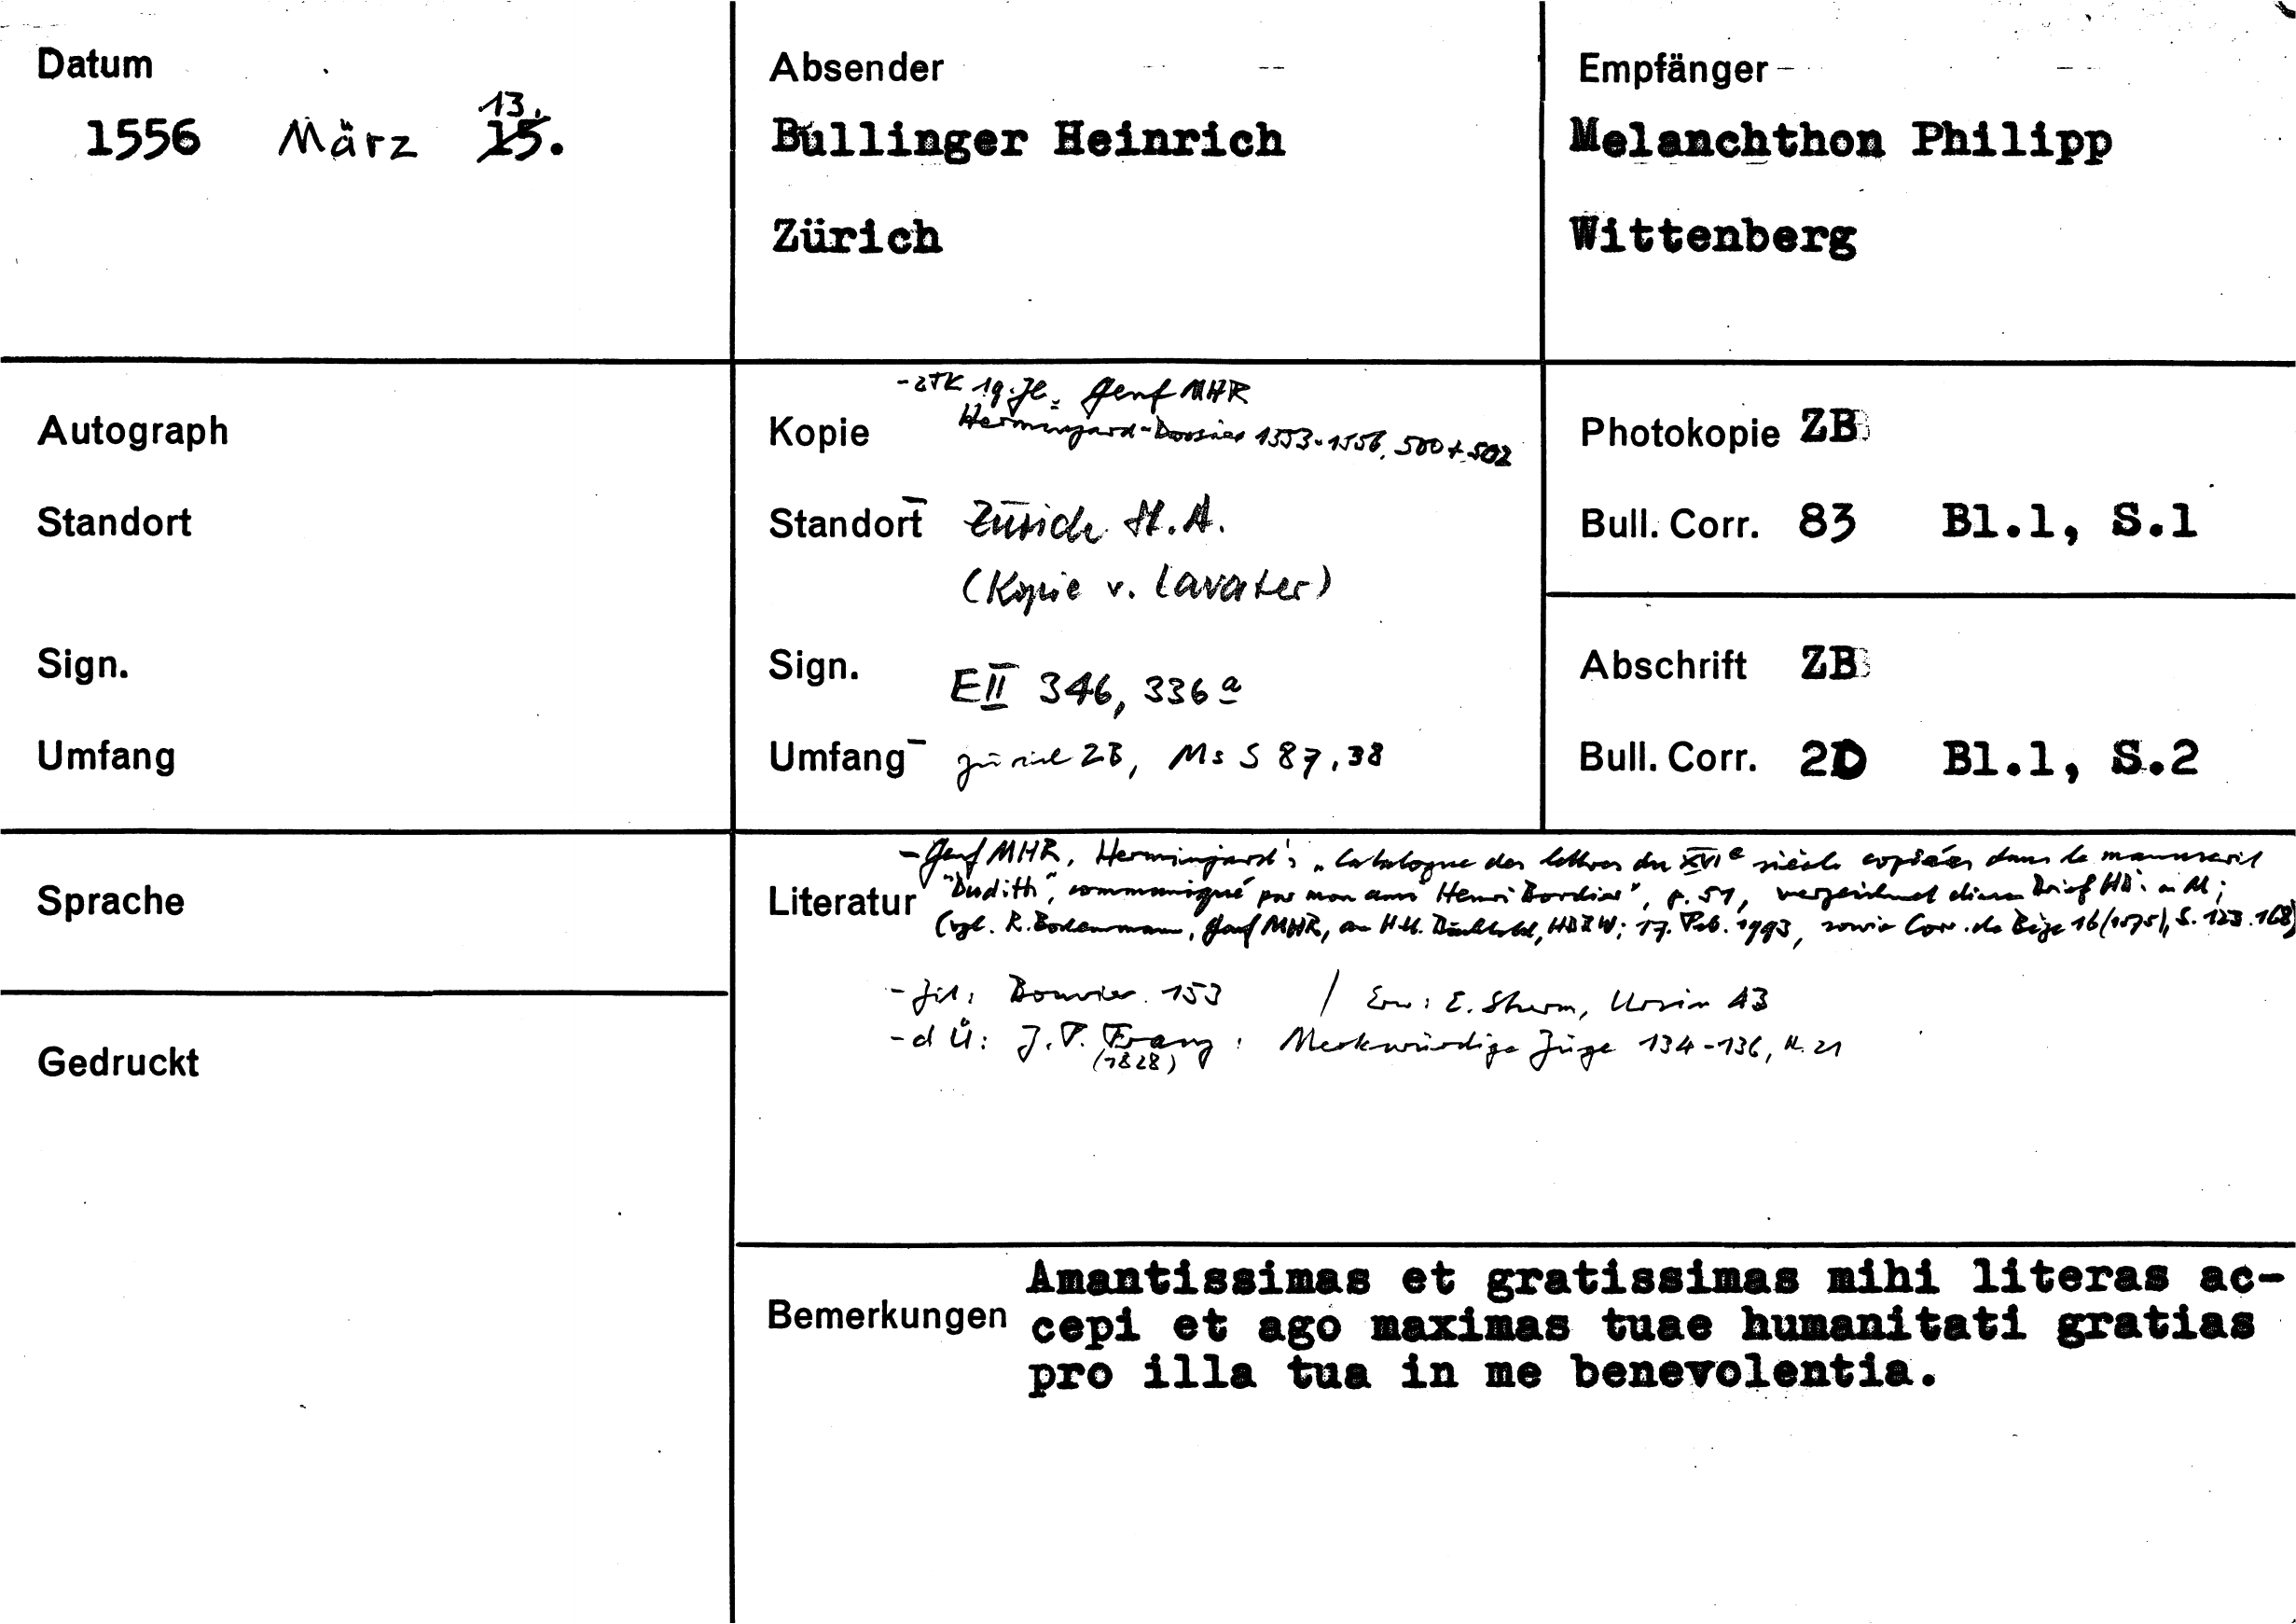 Datum
13.
1556 März 15.
Absender
Bullinger Heinrich
Zürich
Empfänger
Melanchthon Philipp
Wittenberg
Autograph
Standort
Sign.
Umfang
- zTK 19. Jh. Genf MHR
Kopie Herminjard-Dossier 1553-1556, 500+502
Standort - Zürich St.A.
(Kopie v. Lavater)
Sign. EII 346, 336a
Umfang - Zürich ZB, Ms S 87, 38
Photokopie ZB
Bull. Corr. 83 Bl.1, S.1
Abschrift ZB
Bull. Corr. 2D Bl.1, S.2
Sprache
Gedruckt
- Genf MHR, Herminjard's „Catalogue des lettres du XVIe siècle copiées dans le manuscrit
Literatur "Dudith", communiqué par mon ami Henri Bordier", p. 51, verzeichnet diesen Brief HB's an M;
(vgl. R. Bodenmann, Genf MHR, an H.U. Bächtold, HBBW; 17. Feb. 1993, sowie Corr. de Bèze 16 (1575), S. 123.168)
- Zit: Bouvier 153 / Erw: E. Sturm, Ursin 43
- d Ü: J.P. Franz: Merkwürdige Züge 134-136, N. 21
(1828)
Bemerkungen
Amantissimas et gratissimas mihi literas ac-
cepi et ago maximas tuae humanitati gratias
pro illa tua in me benevolentia.